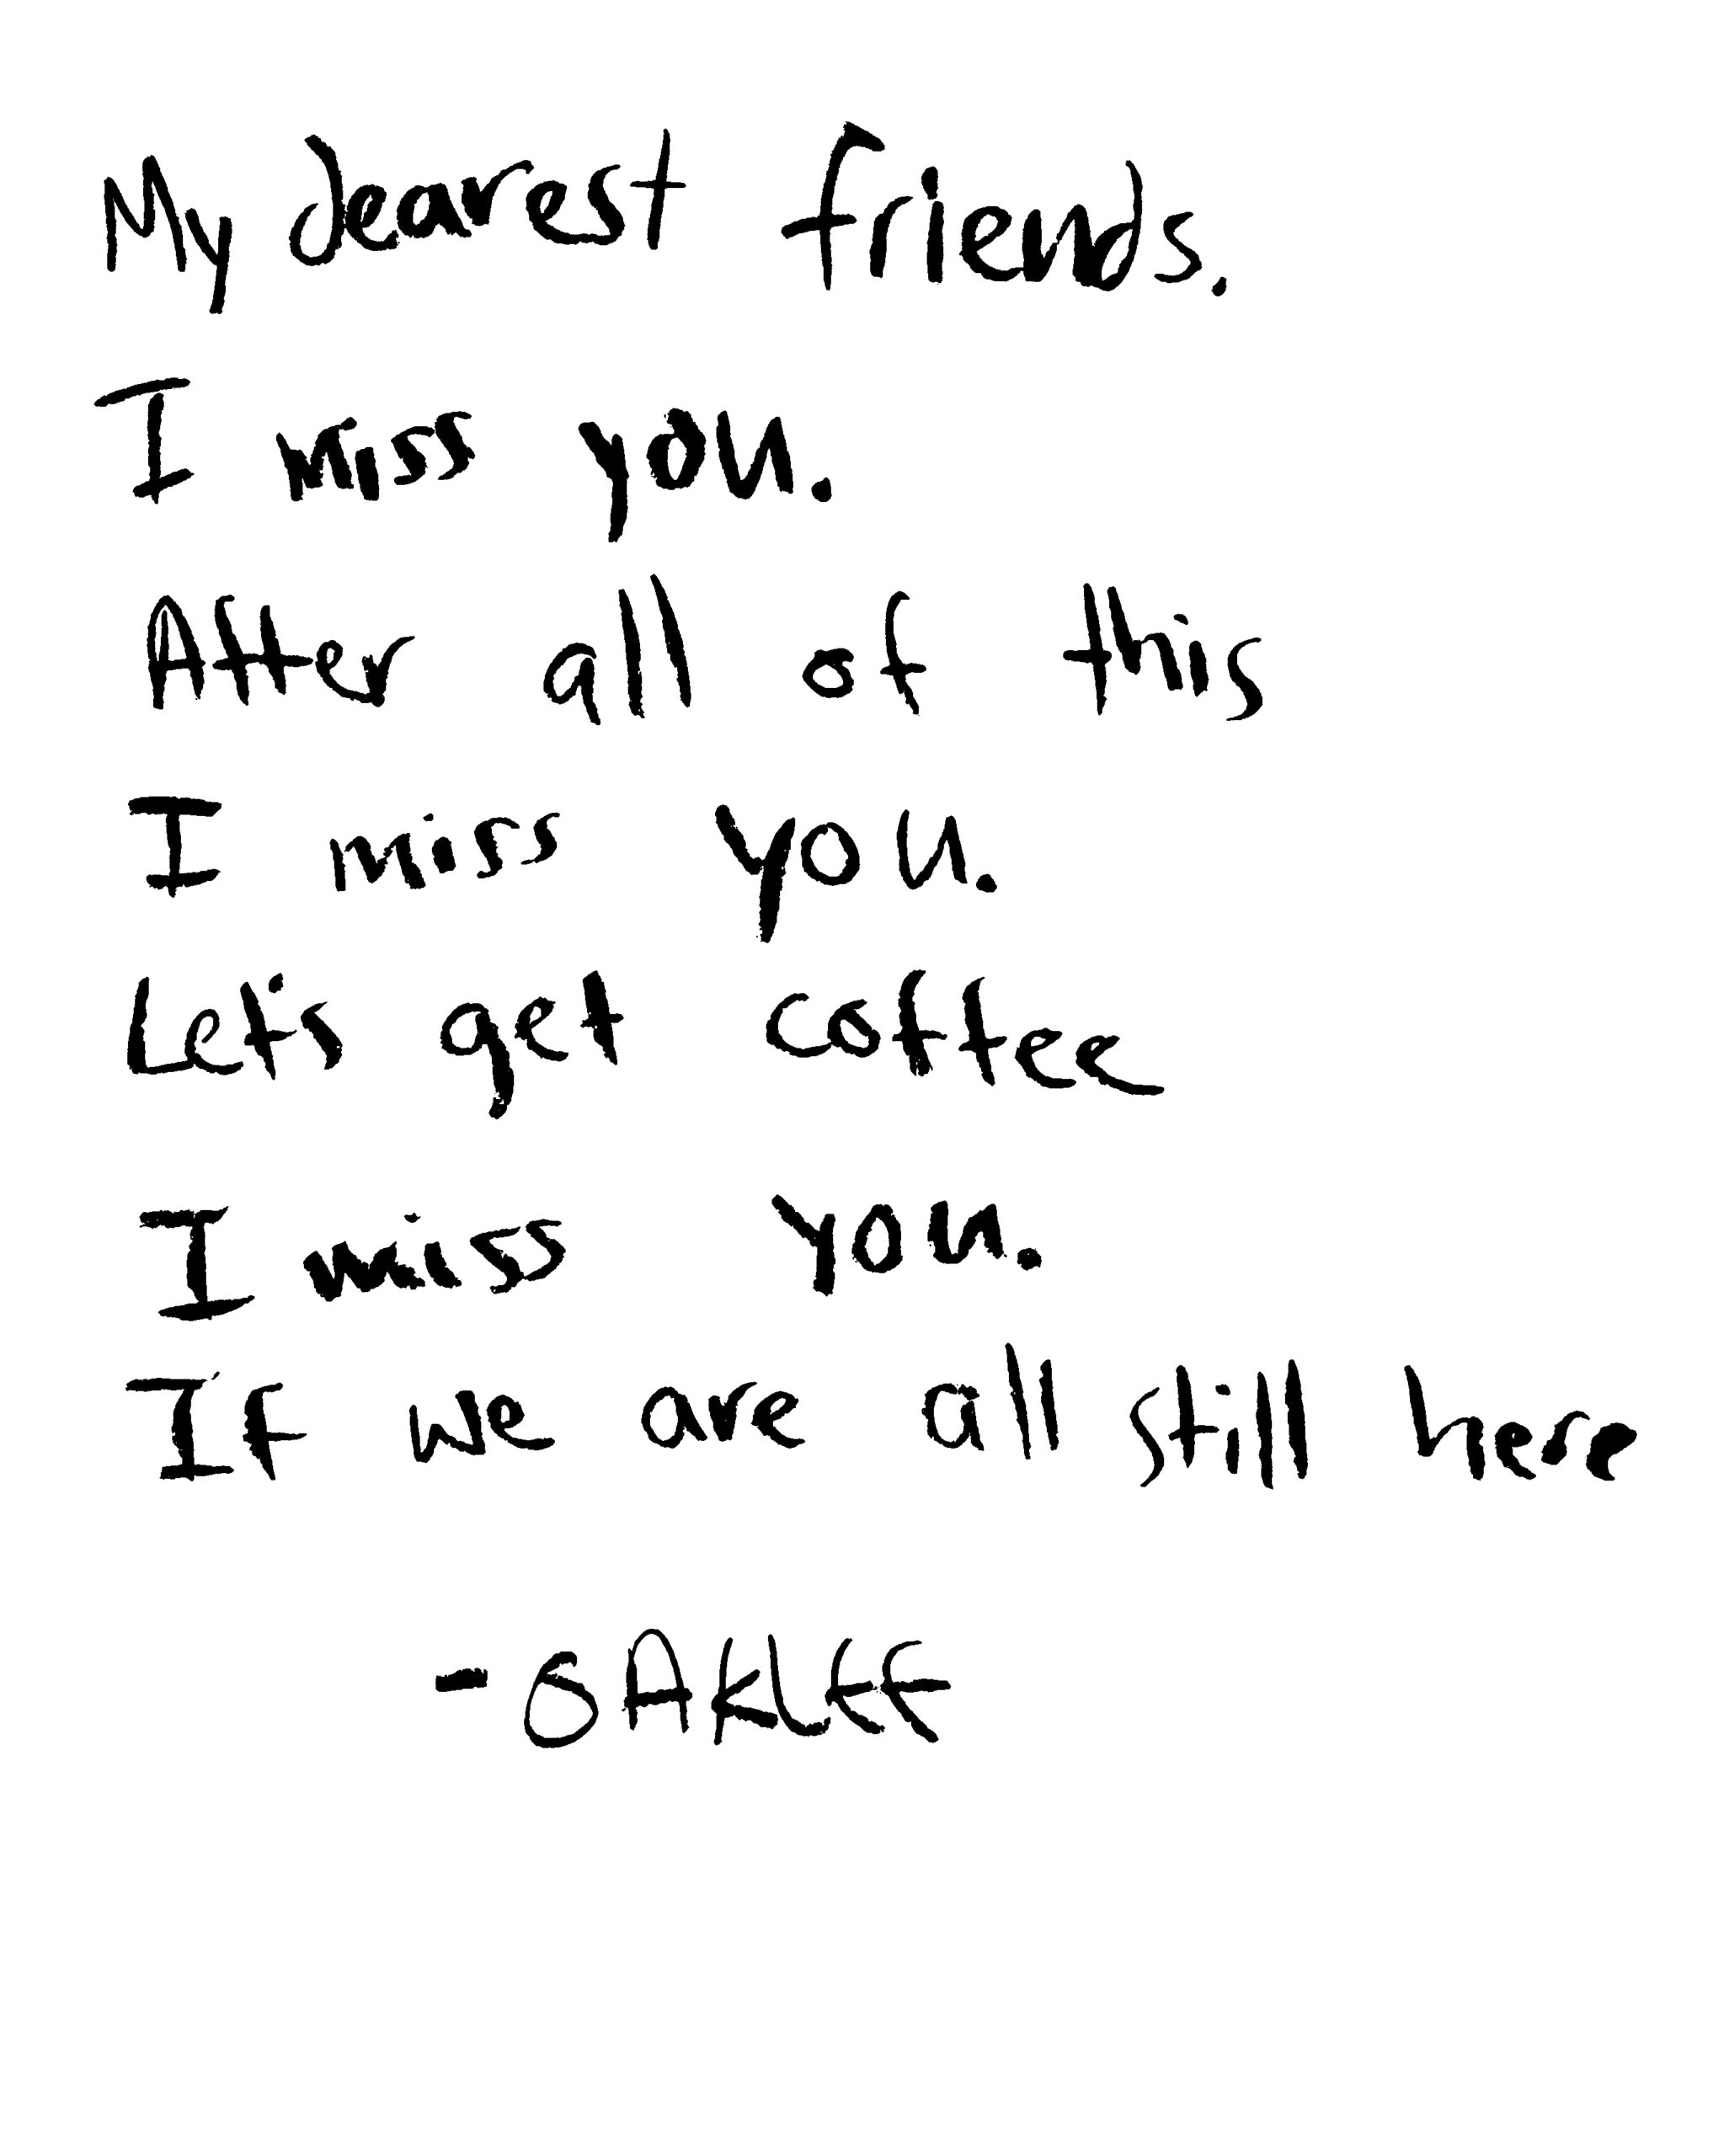 My dearest friends.
I miss you.
After all of this
I miss you.
Let's get coffee
I miss you.
If we are all still here
-